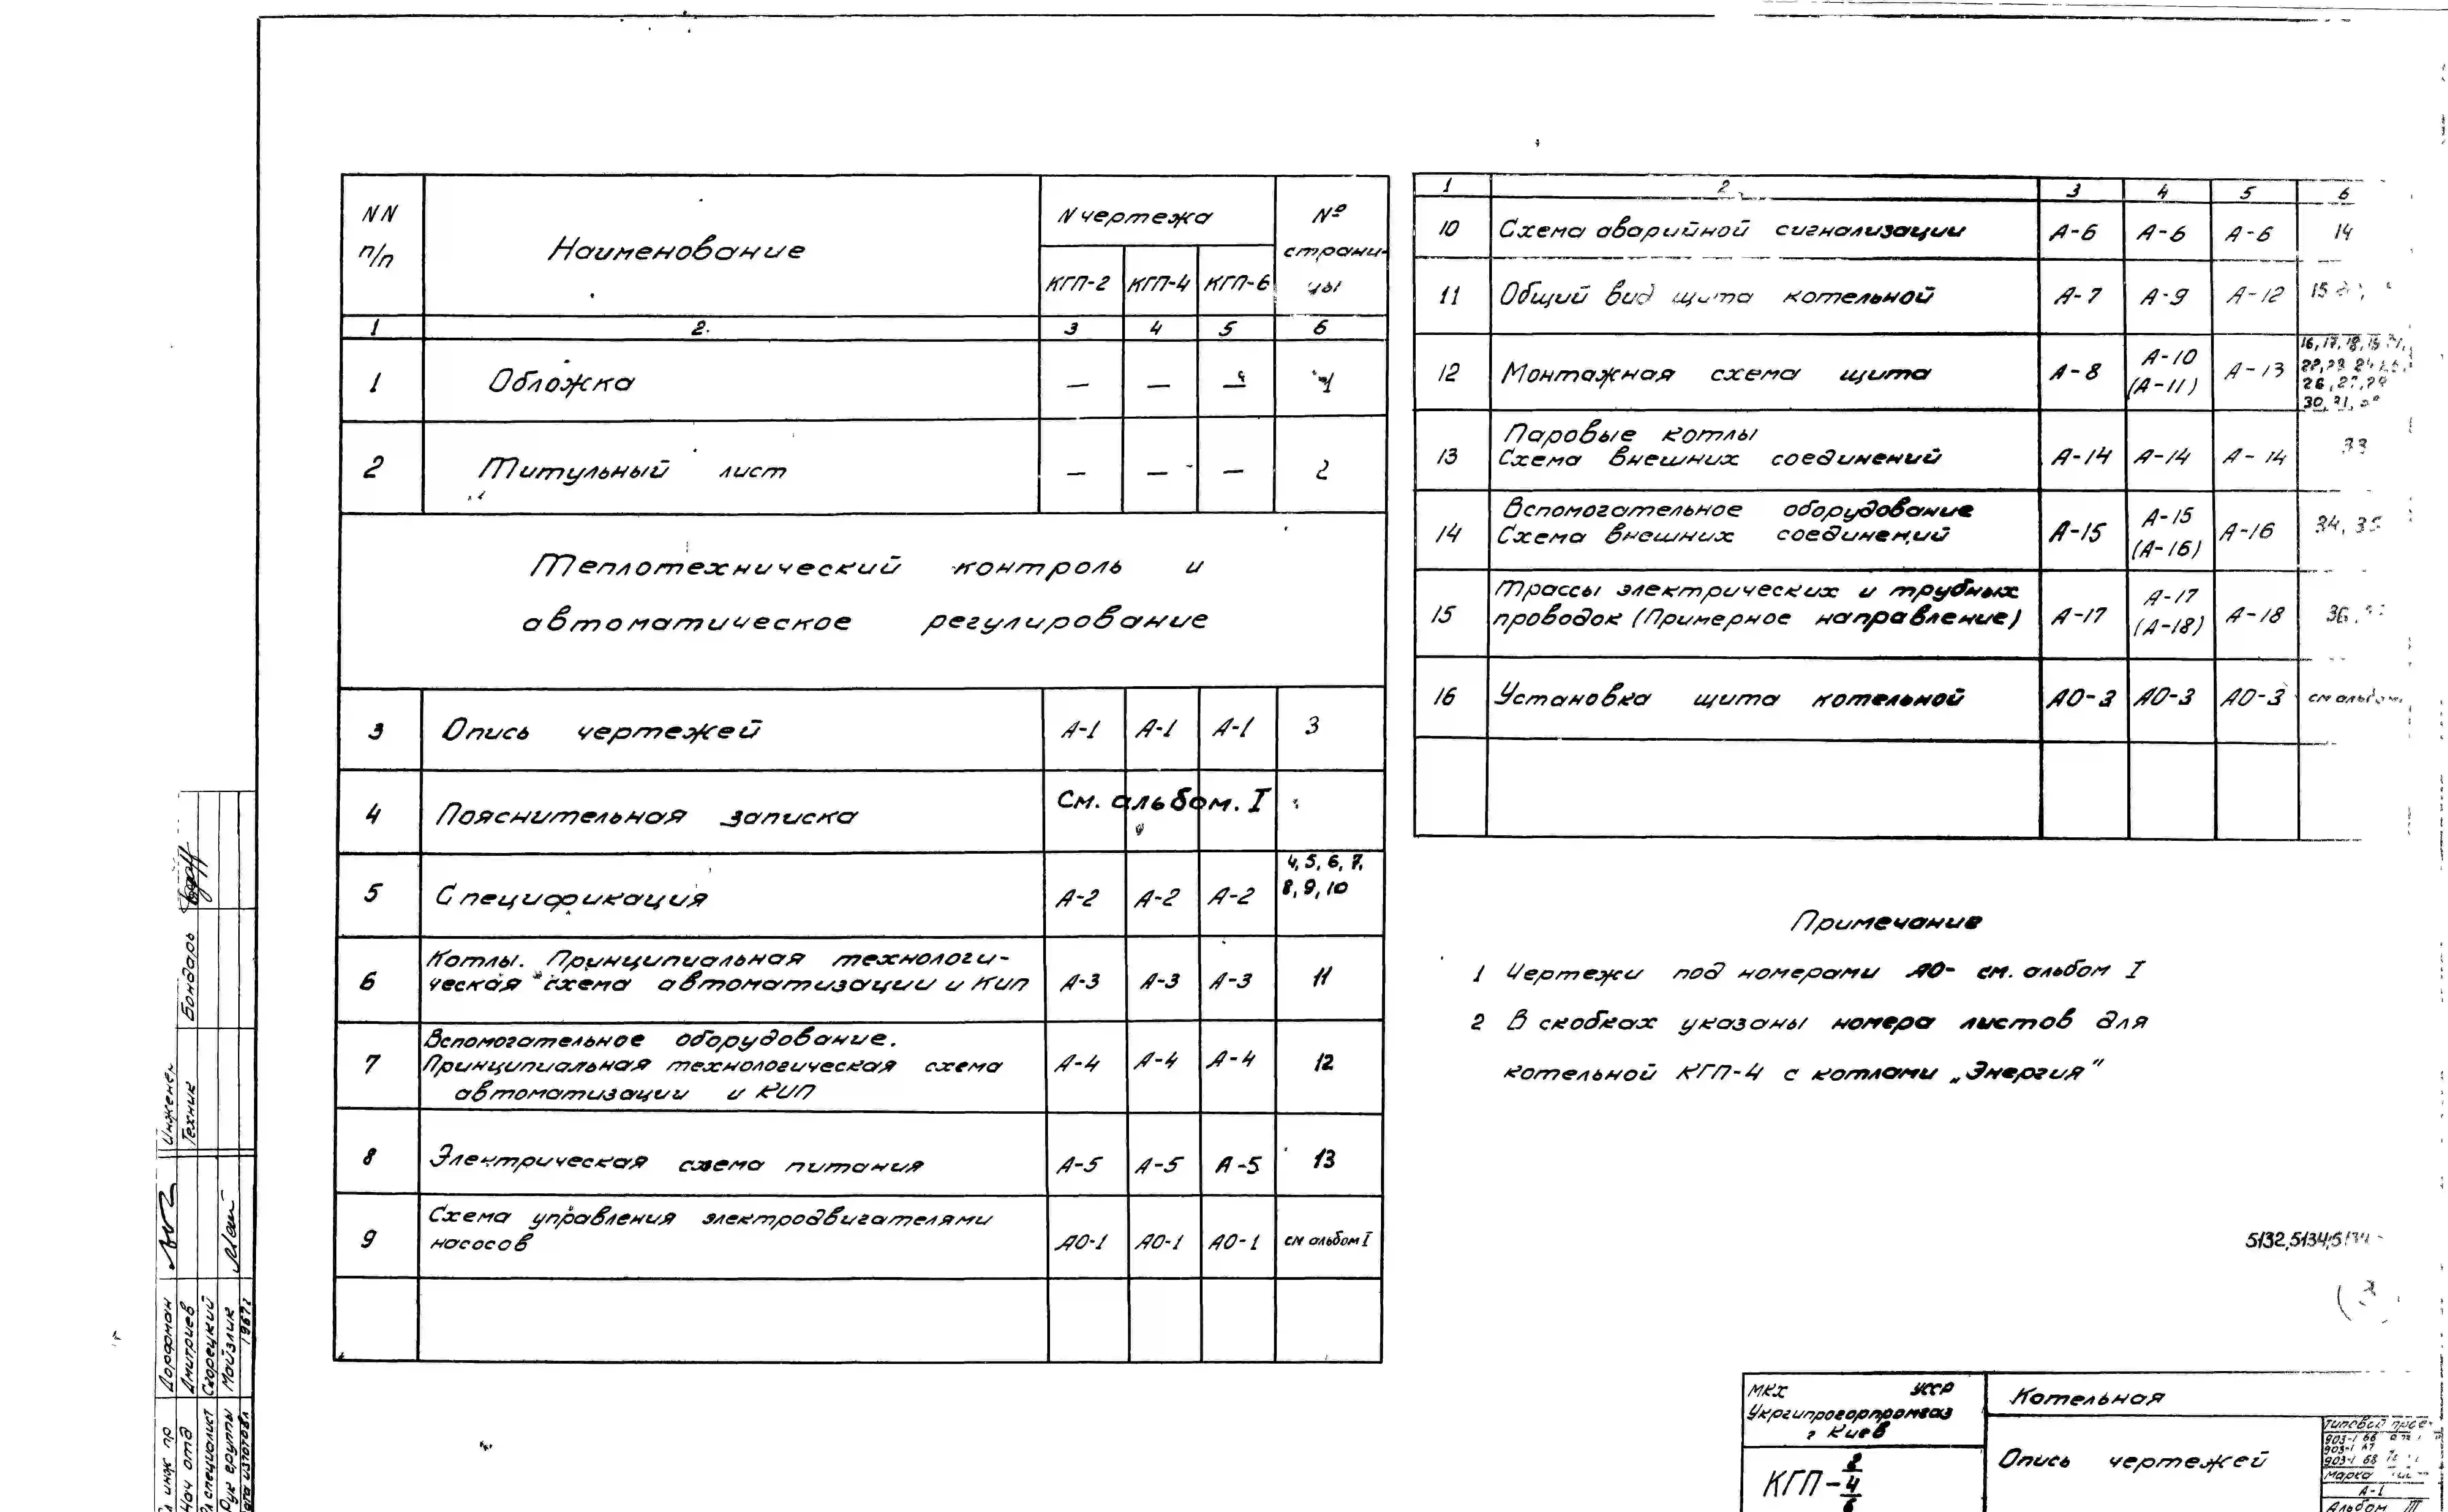 NN п/п Наименование N чертежа № страни-
КГП-2 КГП-4 КГП-6 цы
1 2 3 4 5 6
1 Обложка — — — 1
2 Титульный лист — — — 2
Теплотехнический контроль и
автоматическое регулирование
3 Опись чертежей А-1 А-1 А-1 3
4 Пояснительная записка См. альбом. I
5 Спецификация А-2 А-2 А-2 4, 5, 6, 7,
8, 9, 10
6 Котлы. Принципиальная технологи-
ческая схема автоматизации и КИП А-3 А-3 А-3 11
7 Вспомогательное оборудование.
Принципиальная технологическая схема А-4 А-4 А-4 12
автоматизации и КИП
8 Электрическая схема питания А-5 А-5 А-5 13
9 Схема управления электродвигателями
насосов АО-1 АО-1 АО-1 см альбом I
1 2 3 4 5 6
10 Схема аварийной сигнализации А-6 А-6 А-6 14
11 Общий вид щита котельной А-7 А-9 А-12 15
12 Монтажная схема щита А-8 А-10 А-13 16, 17, 18, 19
(А-11) 26, 27,
30, 31,
13 Паровые котлы
Схема внешних соединений А-14 А-14 А-14 33
14 Вспомогательное оборудование
Схема внешних соединений А-15 А-15 А-16 34, 35
(А-16)
15 Трассы электрических и трубных
проводок (Примерное направление) А-17 А-17 А-18 36,
(А-18)
16 Установка щита котельной АО-3 АО-3 АО-3 см альбом
Примечание
1 Чертежи под номерами АО- см. альбом I
2 В скобках указаны номера листов для
котельной КГП-4 с котлами „Энергия"
5132, 5134,
МКХ УССР
Укргипрогорпромгаз
г Киев
КГП-2/4/6
Котельная
Опись чертежей
Типовой
903-1 66
903-1 67
903-1 68
Марка
А-1
Альбом III
Инженер
Техник Бондарь
инж пр Дорфман
Нач отд Дмитриев
специалист Скорецкий
Рук группы Майзлик
изготовл 1967г